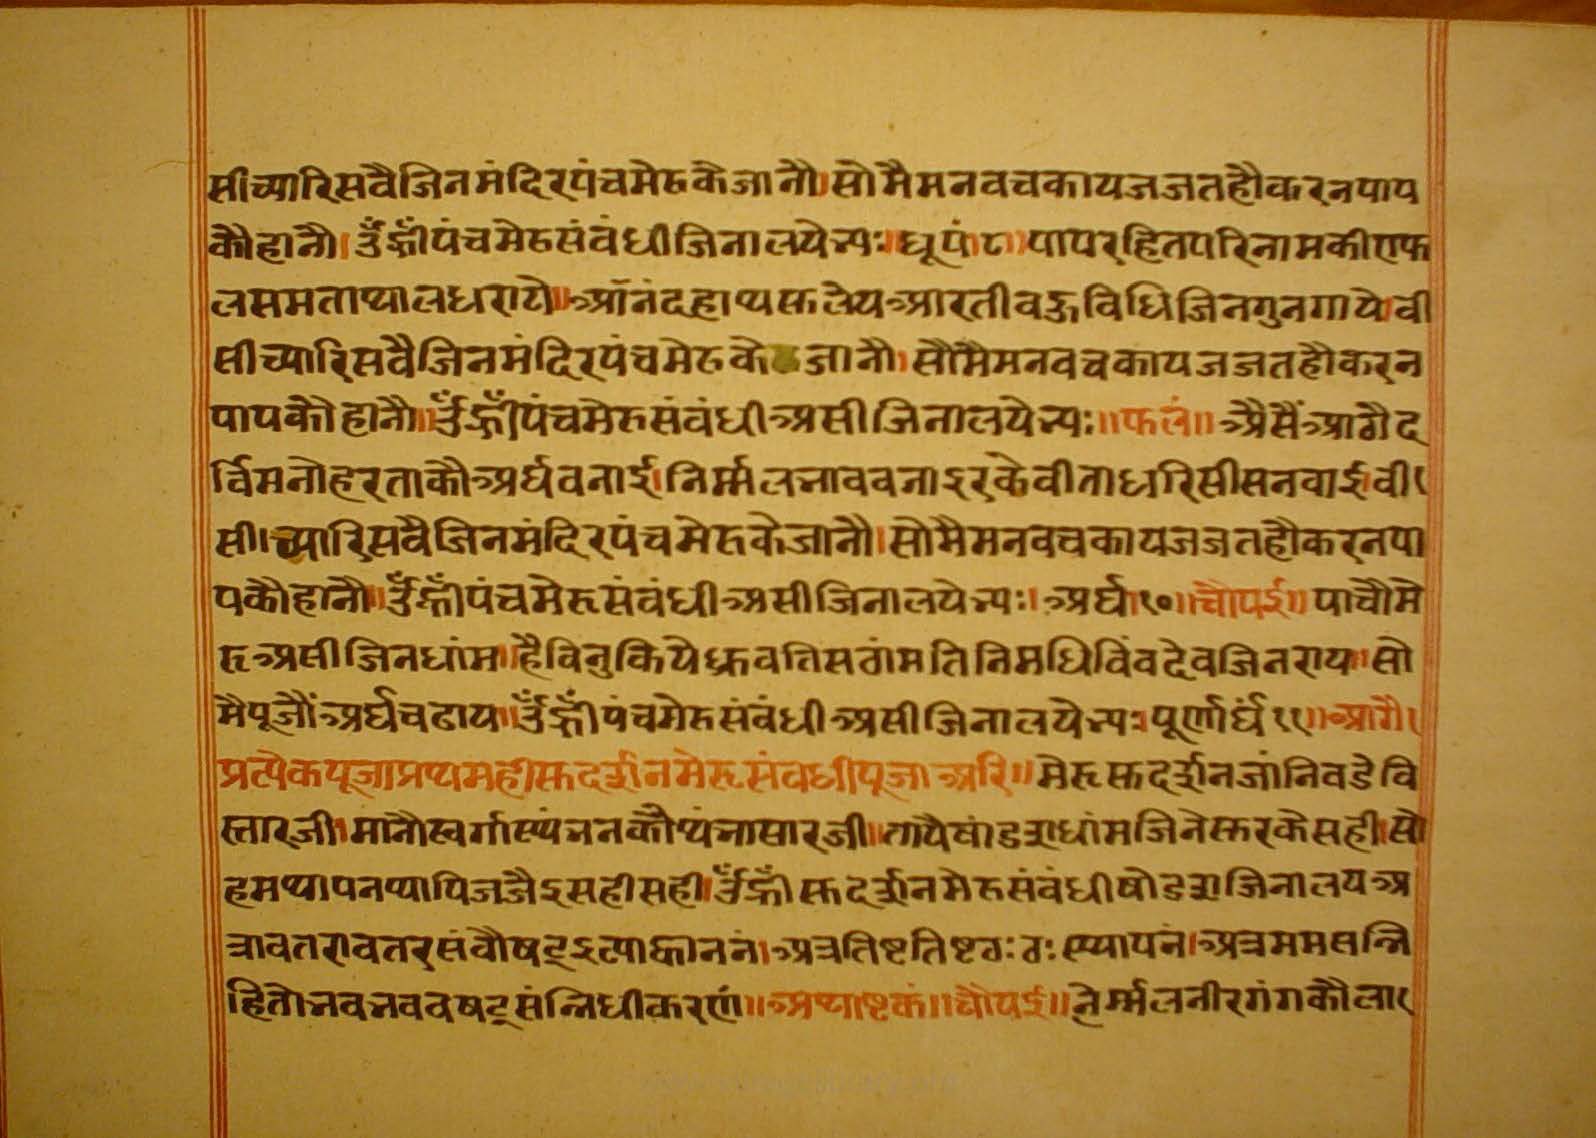 सीच्यारिसवैजिनमंदिरपंचमेरुकेजानौ।सोमैमनवचकायजजतहौकरनपाप
कौहानौ।ॐह्रीँपंचमेरुसंवंधीजिनालयेभ्यः॥धूपं८॥पापरहितपरिनामकीएफ
लसमताथालधराये॥आंनंदहाथसुलेयआरतीवहुविधिजिनगुनगाये।वी
सीच्यारिसवैजिनमंदिरपंचमेरुकेजानौ।सौमैमनवचकायजजतहौकरन
पापकौहानौ॥ॐह्रीँपंचमेरुसंवंधीअसीजिनालयेभ्यः॥फलं॥अैसैंआठौद
र्विमनोहरताकौअर्घवनाई।निर्म्मलभाववनाइरकेवीताधरिसीसनवाई।वी
सी।च्यारिसवैजिनमंदिरपंचमेरुकेजानौ।सोमैमनवचकायजजतहौकरनपा
पकौहानौ॥ॐह्रीँपंचमेरूसंवंधीअसीजिनालयेभ्यः।अर्घ।१०॥चौपई॥पाचौमे
रूअसीजिनधांम॥हैविनुकियेध्रुवतिसठांमतिनिमधिविंवदेवजिनराय॥सो
मैपूजौंअर्घचढाय॥ॐह्रीँपंचमेरुसंवंधीअसीजिनालयेभ्यः।पूर्णार्घं११॥आगै
प्रत्येकपूजाप्रथमहीसुदर्शनमेरूसंवधीपूजाअरि॥मेरूसुदर्शनजांनिवडेवि
स्तारजी।मानौस्वर्गास्थंभनकौथंभासारजी॥तापैषोडशधांमजिनेसुरकेसही।सो
हमथापनथापिजजैइसहीसही।ॐह्रीँसुदर्शनमेरुसंवंधीषोडशजिनालयअ
त्रावतरावतरसंवौषट्इत्याह्वाननं।अत्रतिष्टतिष्टठःठःस्थापनं।अत्रममसन्नि
हितोभवभववषट्संन्निधीकरणं॥अथाष्टकं॥चौपई॥निर्म्मलनीरगंगकौला